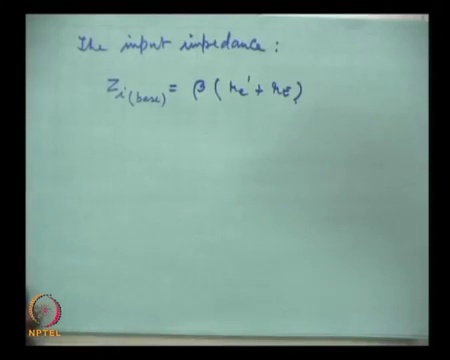 The input impedance :
Z i(base) = β ( re' + rE )
NPTEL